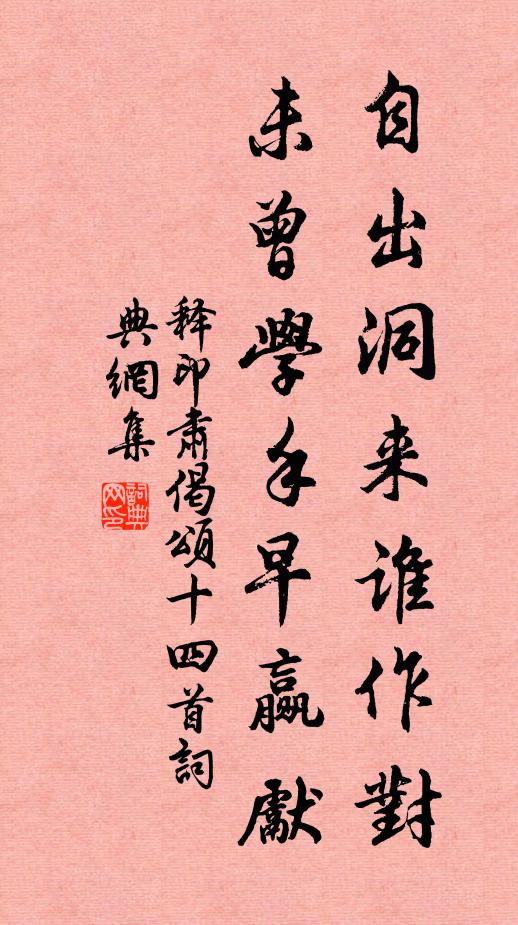 自出洞来誰作對
未曾學手早贏獻
释印肅偈頌十四首詞
典網集
詞典
网印